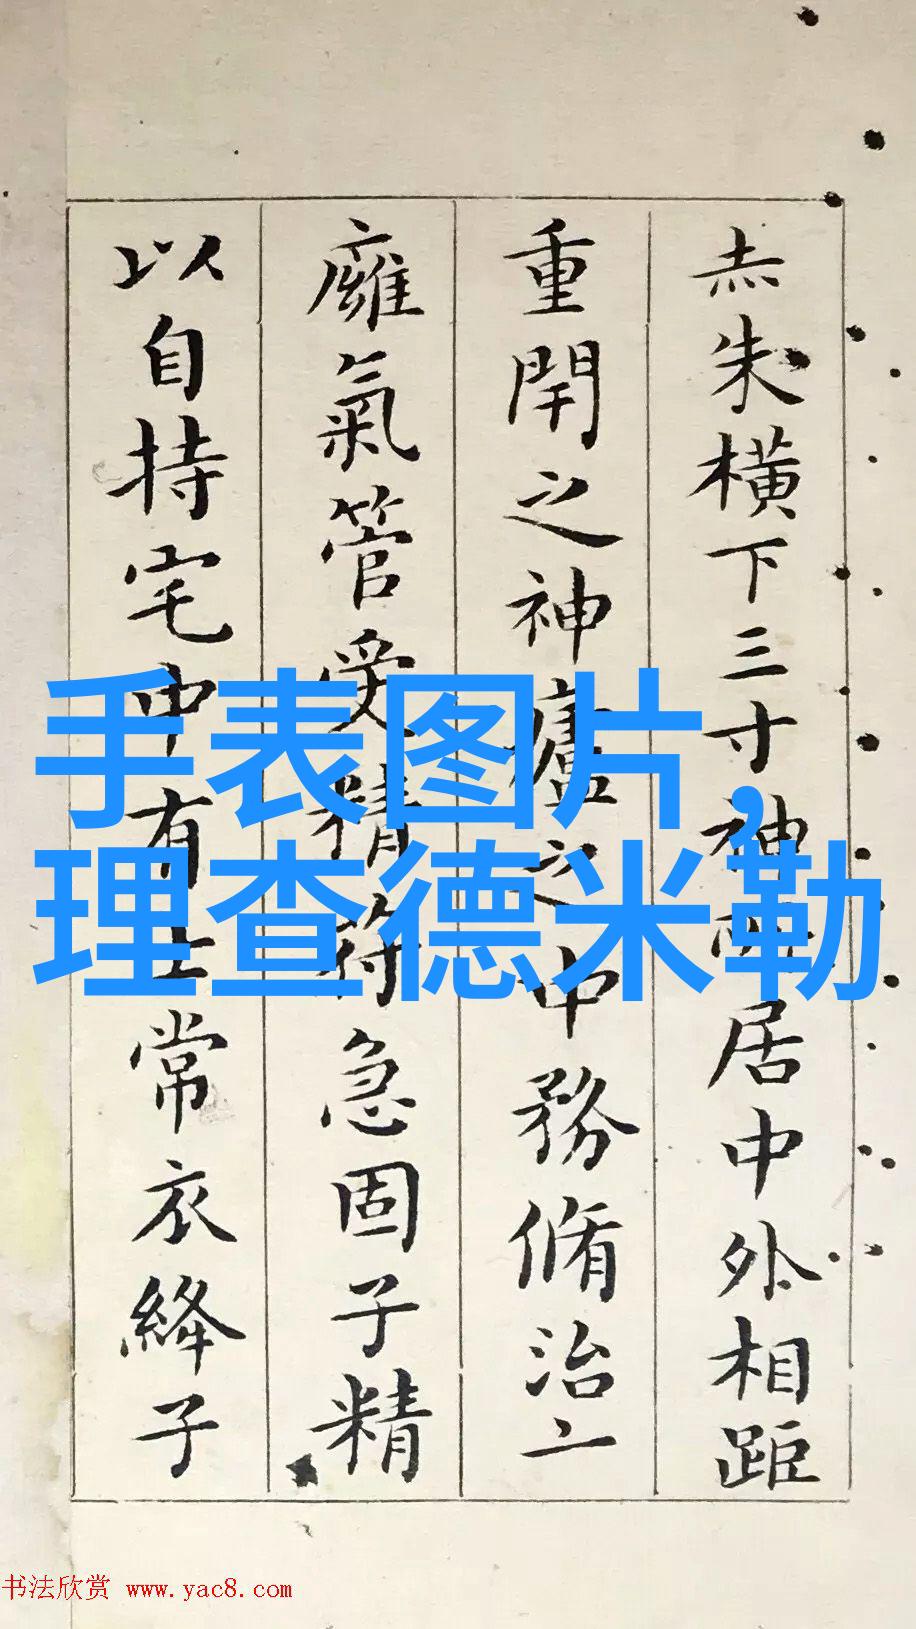 赤朱橫下三寸神所居中外相距
重閈之神廬之中務脩治二
廱氣管受精符急固子精
以自持宅中有士常衣絳子
手表图片，
理查德米勒
书法欣赏 www.yac8.com